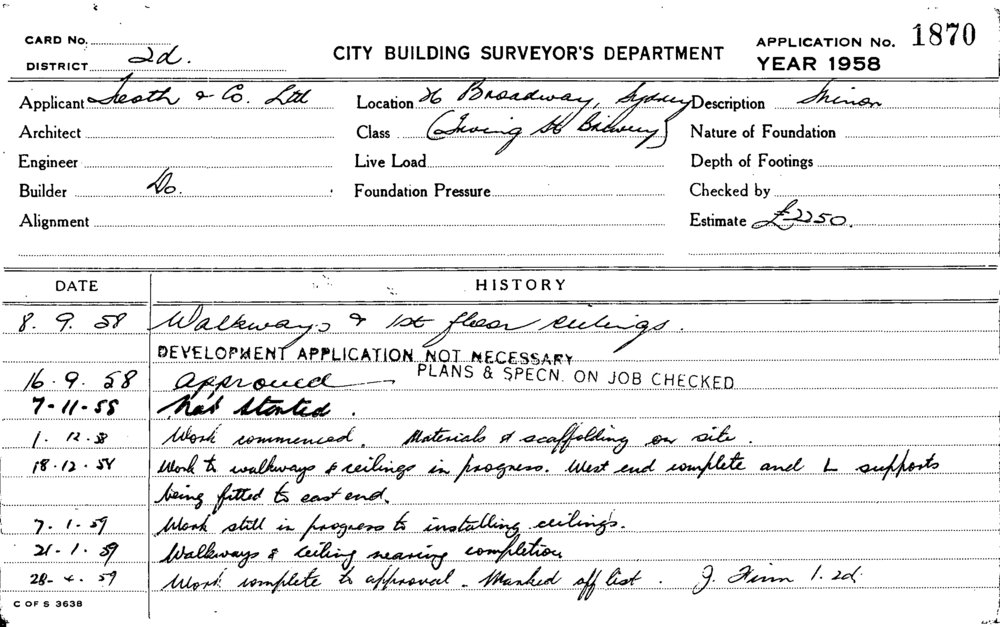 CARD No.
DISTRICT 2d.
CITY BUILDING SURVEYOR'S DEPARTMENT
APPLICATION No. 1870
YEAR 1958
Applicant & Co. Ltd
Location 26 Broadway, Sydney
Description Minor
Architect
Class (Irving St Brewery)
Nature of Foundation
Engineer
Live Load
Depth of Footings
Builder Do.
Foundation Pressure
Checked by
Alignment
Estimate £2250.
DATE
HISTORY
8. 9. 58 Walkways & 1st floor ceilings.
DEVELOPMENT APPLICATION NOT NECESSARY
PLANS & SPECN. ON JOB CHECKED
16. 9. 58 Approved
7-11-58 Not started.
1. 12. 58 Work commenced. Materials & scaffolding on site.
18.12.58 Work to walkways & ceilings in progress. West end complete and L supports
being fitted to east end.
7. 1. 59 Work still in progress to installing ceilings.
21-1.59 Walkways & ceiling nearing completion
28-4.59 Work complete to approval. Marked off list. J. 1. 2d.
C OF S 3638